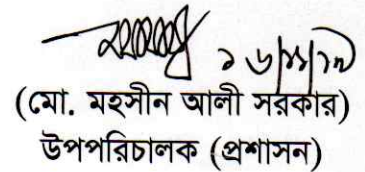 ১৬/১১/১৭
(মো. মহসীন আলী সরকার)
উপপরিচালক (প্রশাসন)